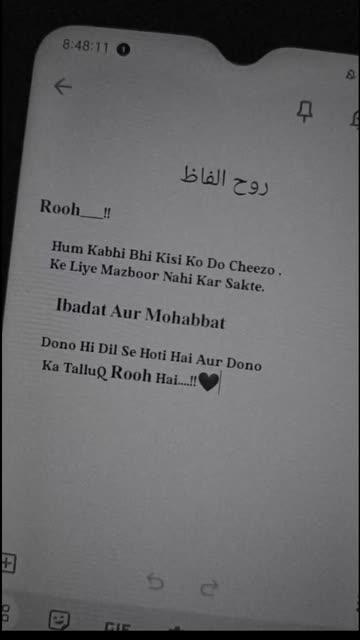 8:48:11
روح الفاظ
Rooh___!!
Hum Kabhi Bhi Kisi Ko Do Cheezo .
Ke Liye Mazboor Nahi Kar Sakte.
Ibadat Aur Mohabbat
Dono Hi Dil Se Hoti Hai Aur Dono
Ka TalluQ Rooh Hai....!!🖤
GIF